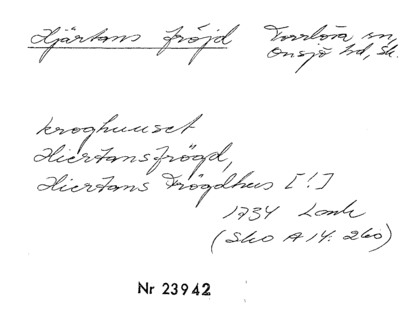 Hjärtans fröjd Torrlösa sn,
Onsjö hd, Sk.
kroghuuset
Hiertansfrögd,
Hiertans Frögdhus [!]
1734 Lantm
(Sko A 14: 260)
Nr 23942